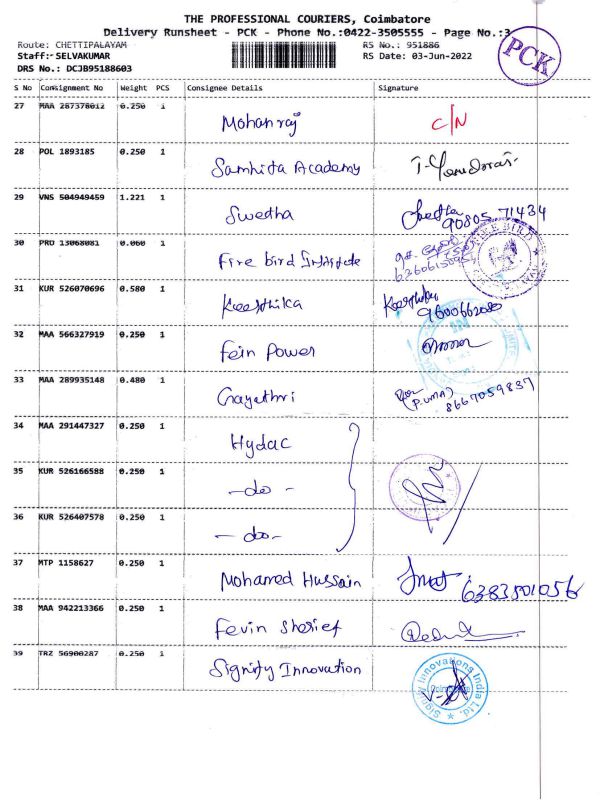 THE PROFESSIONAL COURIERS, Coimbatore
Delivery Runsheet - PCK - Phone No.:0422-3505555 - Page No.:3
Route: CHETTIPALAYAM RS No.: 951886
Staff:- SELVAKUMAR RS Date: 03-Jun-2022
DRS No.: DCJB95188603
PCK
S No Consignment No Weight PCS Consignee Details Signature
27 MAA 287378012 0.250 1 Mohanraj C/N
28 POL 1893185 0.250 1 Samhita Academy
29 VNS 504949459 1.221 1 Swetha Swetha 90805 71434
30 PRO 13068081 0.060 1 Fire bird Institute
31 KUR 526070696 0.580 1 Keerthika Keerthika
32 MAA 566327919 0.250 1 Fein Power
33 MAA 289935148 0.480 1 Gayathri (PUMA) 8667059837
34 MAA 291447327 0.250 1 Hydac
35 KUR 526166588 0.250 1 - do -
36 KUR 526407578 0.250 1 - do -
37 MTP 1158627 0.250 1 Mohamed Hussain 6383501056
38 MAA 942213366 0.250 1 Fevin Sherief
39 TRZ 56900287 0.250 1 Signity Innovation
Signity Innovations India Ltd.